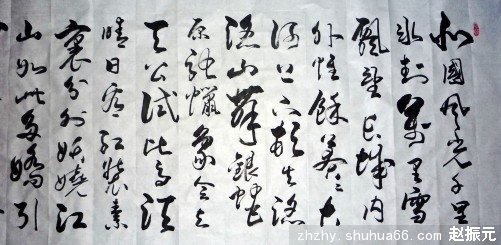 北國风光千里
冰封萬里雪
飄望长城内
外惟餘莽莽大
河上下顿失滔
滔山舞銀蛇
原馳蠟象欲与
天公試比高须
晴日看红裝素
裹分外妖嬈江
山如此多嬌引
zhzhy.shuhua66.com 赵振元